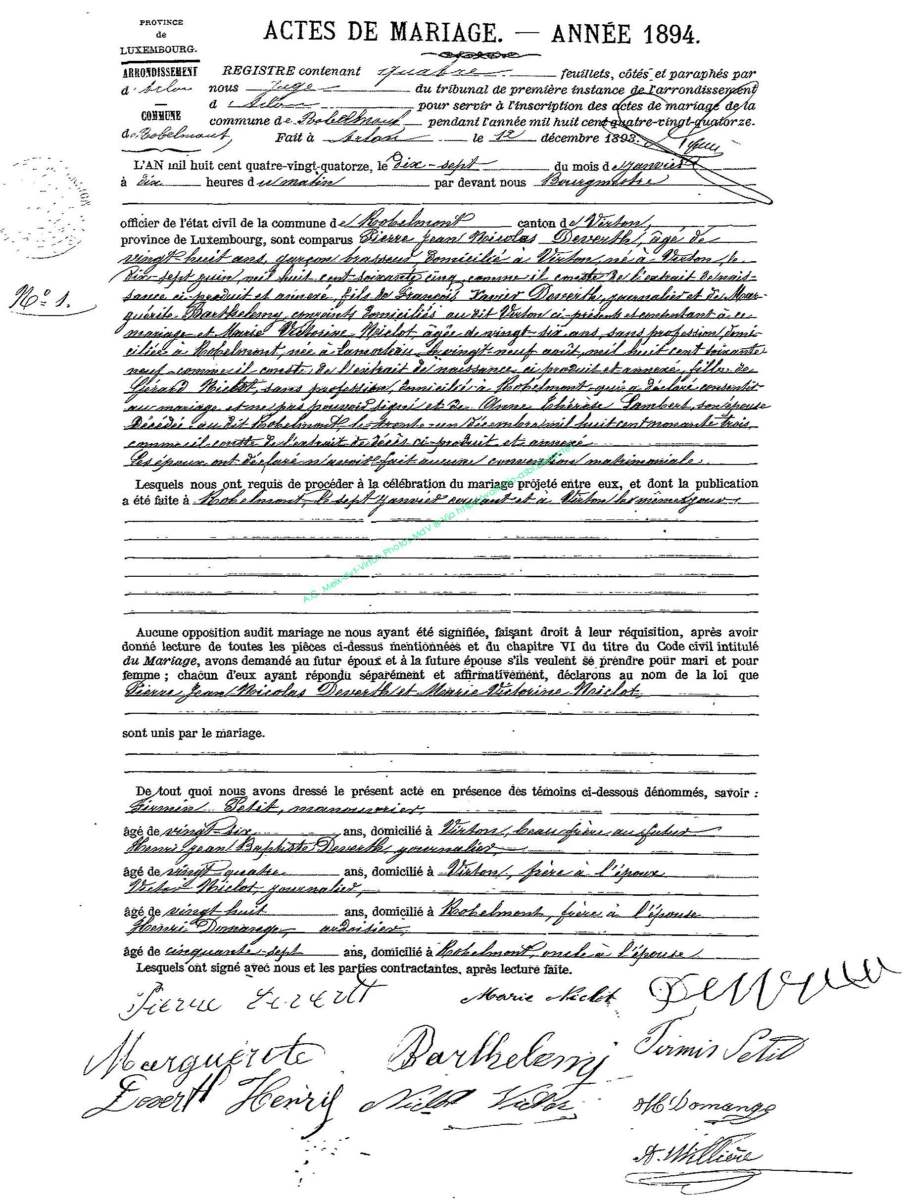 PROVINCE
de
LUXEMBOURG.
ARRONDISSEMENT
d'Arlon
COMMUNE
de Robelmont
ACTES DE MARIAGE. — ANNÉE 1894.
REGISTRE contenant quatre feuillets, côtés et paraphés par
nous Juge du tribunal de première instance de l'arrondissement
d'Arlon pour servir à l'inscription des actes de mariage de la
commune de Robelmont pendant l'année mil huit cent quatre-vingt-quatorze.
Fait à Arlon le 12 décembre 1893.
L'AN mil huit cent quatre-vingt-quatorze, le dix-sept du mois de janvier
à dix heures du matin par devant nous Bourgmestre
officier de l'état civil de la commune de Robelmont canton de Virton,
province de Luxembourg, sont comparus Pierre Jean Nicolas Deverth, âgé de
vingt-huit ans, garçon brasseur domicilié à Virton, né à Virton, le
dix-sept juin, mil huit cent soixante cinq, comme il conste de l'extrait de nais-
N° 1.
sance ci-produit et annexé, fils de François Xavier Deverth, journalier et de Mar-
guérite Barthelemy, conjoints domiciliés au dit Virton ci-présents et consentant à ce
mariage et Marie Victorine Niclot, âgée de vingt-six ans, sans profession, domi-
ciliée à Robelmont, née à le vingt-neuf août, mil huit cent soixante
neuf comme il conste de l'extrait de naissance ci produit et annexé, fille de
Gérard Niclot, sans profession, domicilié à Robelmont qui a déclaré consentir
au mariage et ne pas pouvoir signé et de Anne Thérèse Lambert, son épouse
décédée au dit Robelmont, le trente-un décembre mil huit cent nonante trois,
comme il conste de l'extrait de décès ci-produit et annexé
Les époux ont déclaré n'avoir fait aucune convention matrimoniale.
Lesquels nous ont requis de procéder à la célébration du mariage projeté entre eux, et dont la publication
a été faite à Robelmont, le sept janvier courant et à Virton les mêmes jour.
Aucune opposition audit mariage ne nous ayant été signifiée, faisant droit à leur réquisition, après avoir
donné lecture de toutes les pièces ci-dessus mentionnées et du chapitre VI du titre du Code civil intitulé
du Mariage, avons demandé au futur époux et à la future épouse s'ils veulent se prendre pour mari et pour
femme ; chacun d'eux ayant répondu séparément et affirmativement, déclarons au nom de la loi que
Pierre Jean Nicolas Deverth et Marie Victorine Niclot
sont unis par le mariage.
De tout quoi nous avons dressé le présent acte en présence des témoins ci-dessous dénommés, savoir :
Firmin Petit, manouvrier
âgé de vingt-six ans, domicilié à Virton, beau frère au futur
Henri Jean Baptiste Deverth journalier,
âgé de vingt quatre ans, domicilié à Virton, frère à l'époux
Victor Niclot, journalier,
âgé de vingt huit ans, domicilié à Robelmont, frère à l'épouse
Henri Domange, ardoisier
âgé de cinquante-sept ans, domicilié à Robelmont, oncle à l'épouse
Lesquels ont signé avec nous et les parties contractantes, après lecture faite.
Pierre Devertt Marie Niclot
Marguérite Barthelemj Firmin Petit
Devertt Henri Niclot Victor H Domange
A. Willière